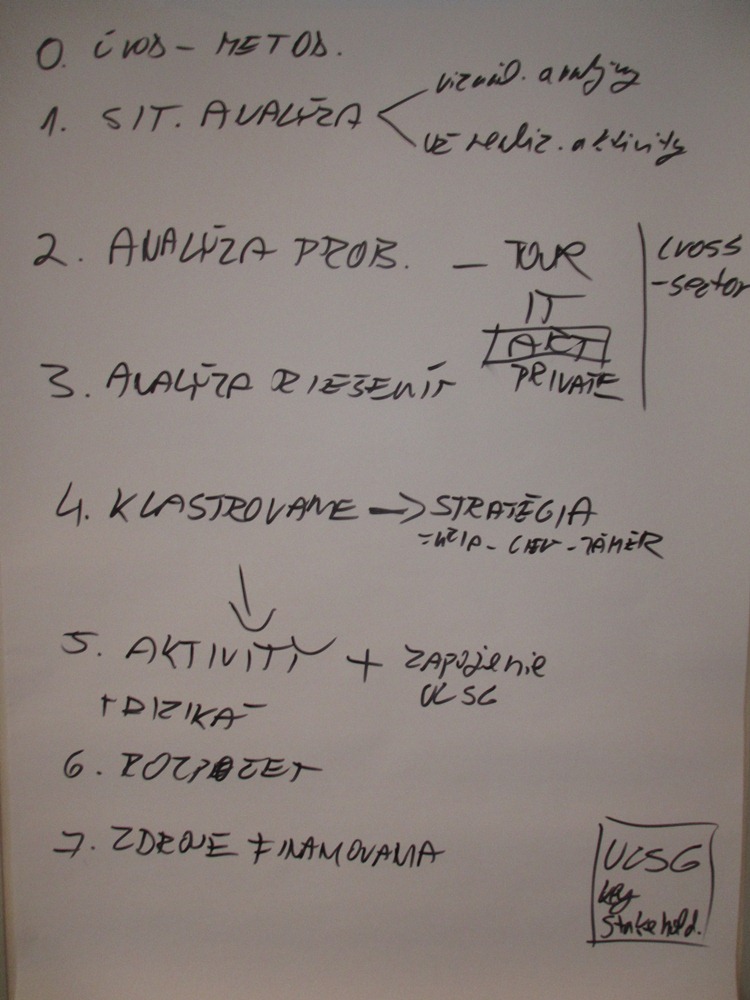 0. ÚVOD - METOD.
1. SIT. ANALÝZA
vizuál. analýzy
už realiz. aktivity
2. ANALÝZA PROB. - TOUR
IT
ART
PRIVATE
cross
-sector
3. ANALÝZA RIEŠENÍ
4. KLASTROVANIE → STRATÉGIA
=VÍZIA - CIEĽ - ZÁMER
5. AKTIVITY + zapojenie
UCSG
+ RIZIKÁ
6. ROZPOČET
7. ZDROJE FINANCOVANIA
UCSG
key
stakehold.